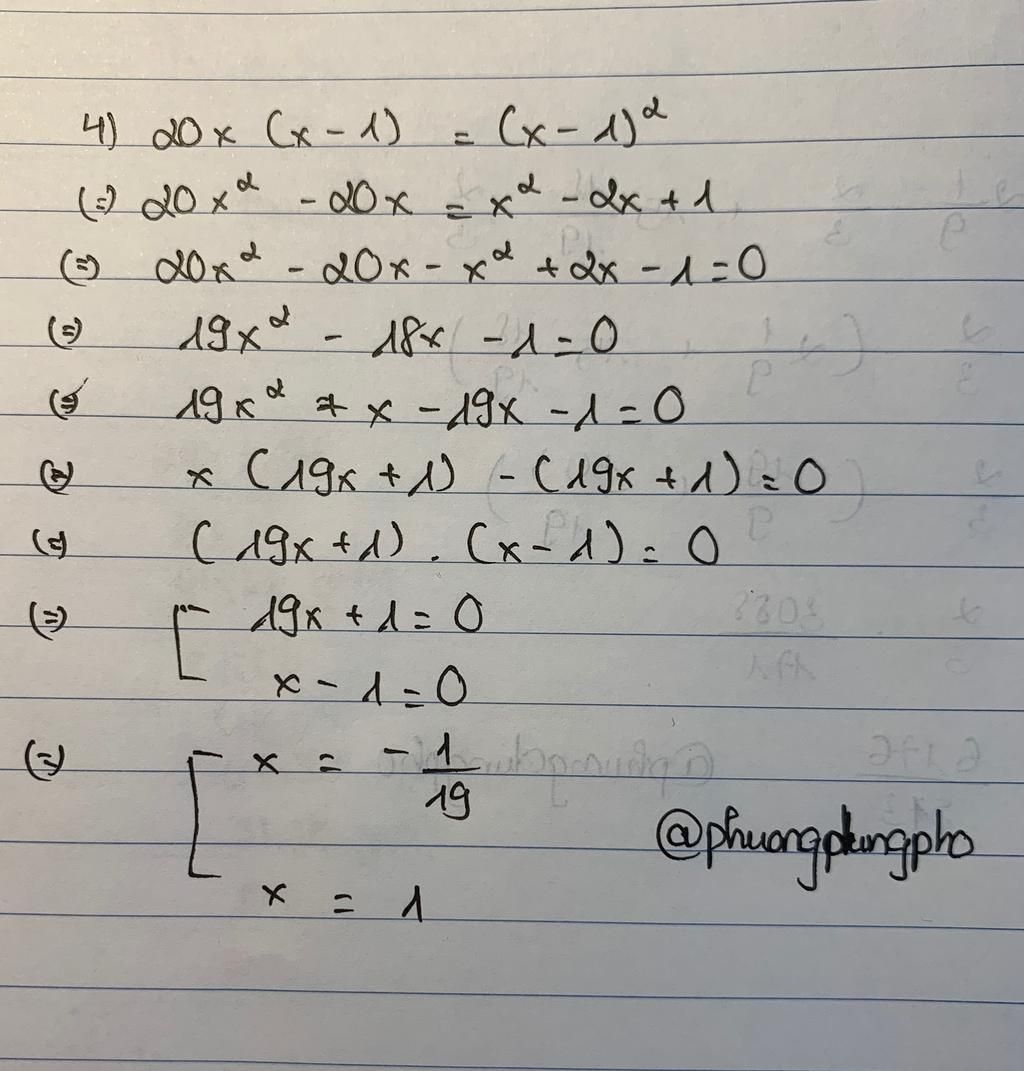 4) 20x (x - 1) = (x - 1)²
(=) 20x² - 20x = x² - 2x + 1
(=) 20x² - 20x - x² + 2x - 1 = 0
(=) 19x² - 18x - 1 = 0
(=) 19x² + x - 19x - 1 = 0
(=) x (19x + 1) - (19x + 1) = 0
(=) (19x + 1) . (x - 1) = 0
(=) [ 19x + 1 = 0
x - 1 = 0
(=) [ x = - 1/19
@phuongdungpho
x = 1